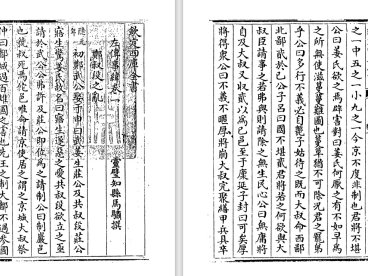 欽定四庫全書
左傳事緯卷一
靈璧知縣馬驌撰
鄭叔段之亂
隱元年初鄭武公娶于申曰武姜生莊公及共叔段莊公
寤生驚姜氏故名曰寤生遂惡之愛共叔段欲立之亟
請於武公公弗許及莊公即位為之請制公曰制巖邑
也虢叔死焉佗邑唯命請京使居之謂之京城大叔祭
仲曰都城過百雉國之害也先王之制大都不過參國
之一中五之一小九之一今京不度非制也君將不堪
公曰姜氏欲之焉辟害對曰姜氏何厭之有不如早為
之所無使滋蔓蔓難圖也蔓草猶不可除況君之寵弟
乎公曰多行不義必自斃子姑待之既而大叔命西鄙
北鄙貳於己公子呂曰國不堪貳君將若之何欲與大
叔臣請事之若弗與則請除之無生民心公曰無庸將
自及大叔又收貳以為己邑至于廩延子封曰可矣厚
將得衆公曰不義不暱厚將崩大叔完聚繕甲兵具卒